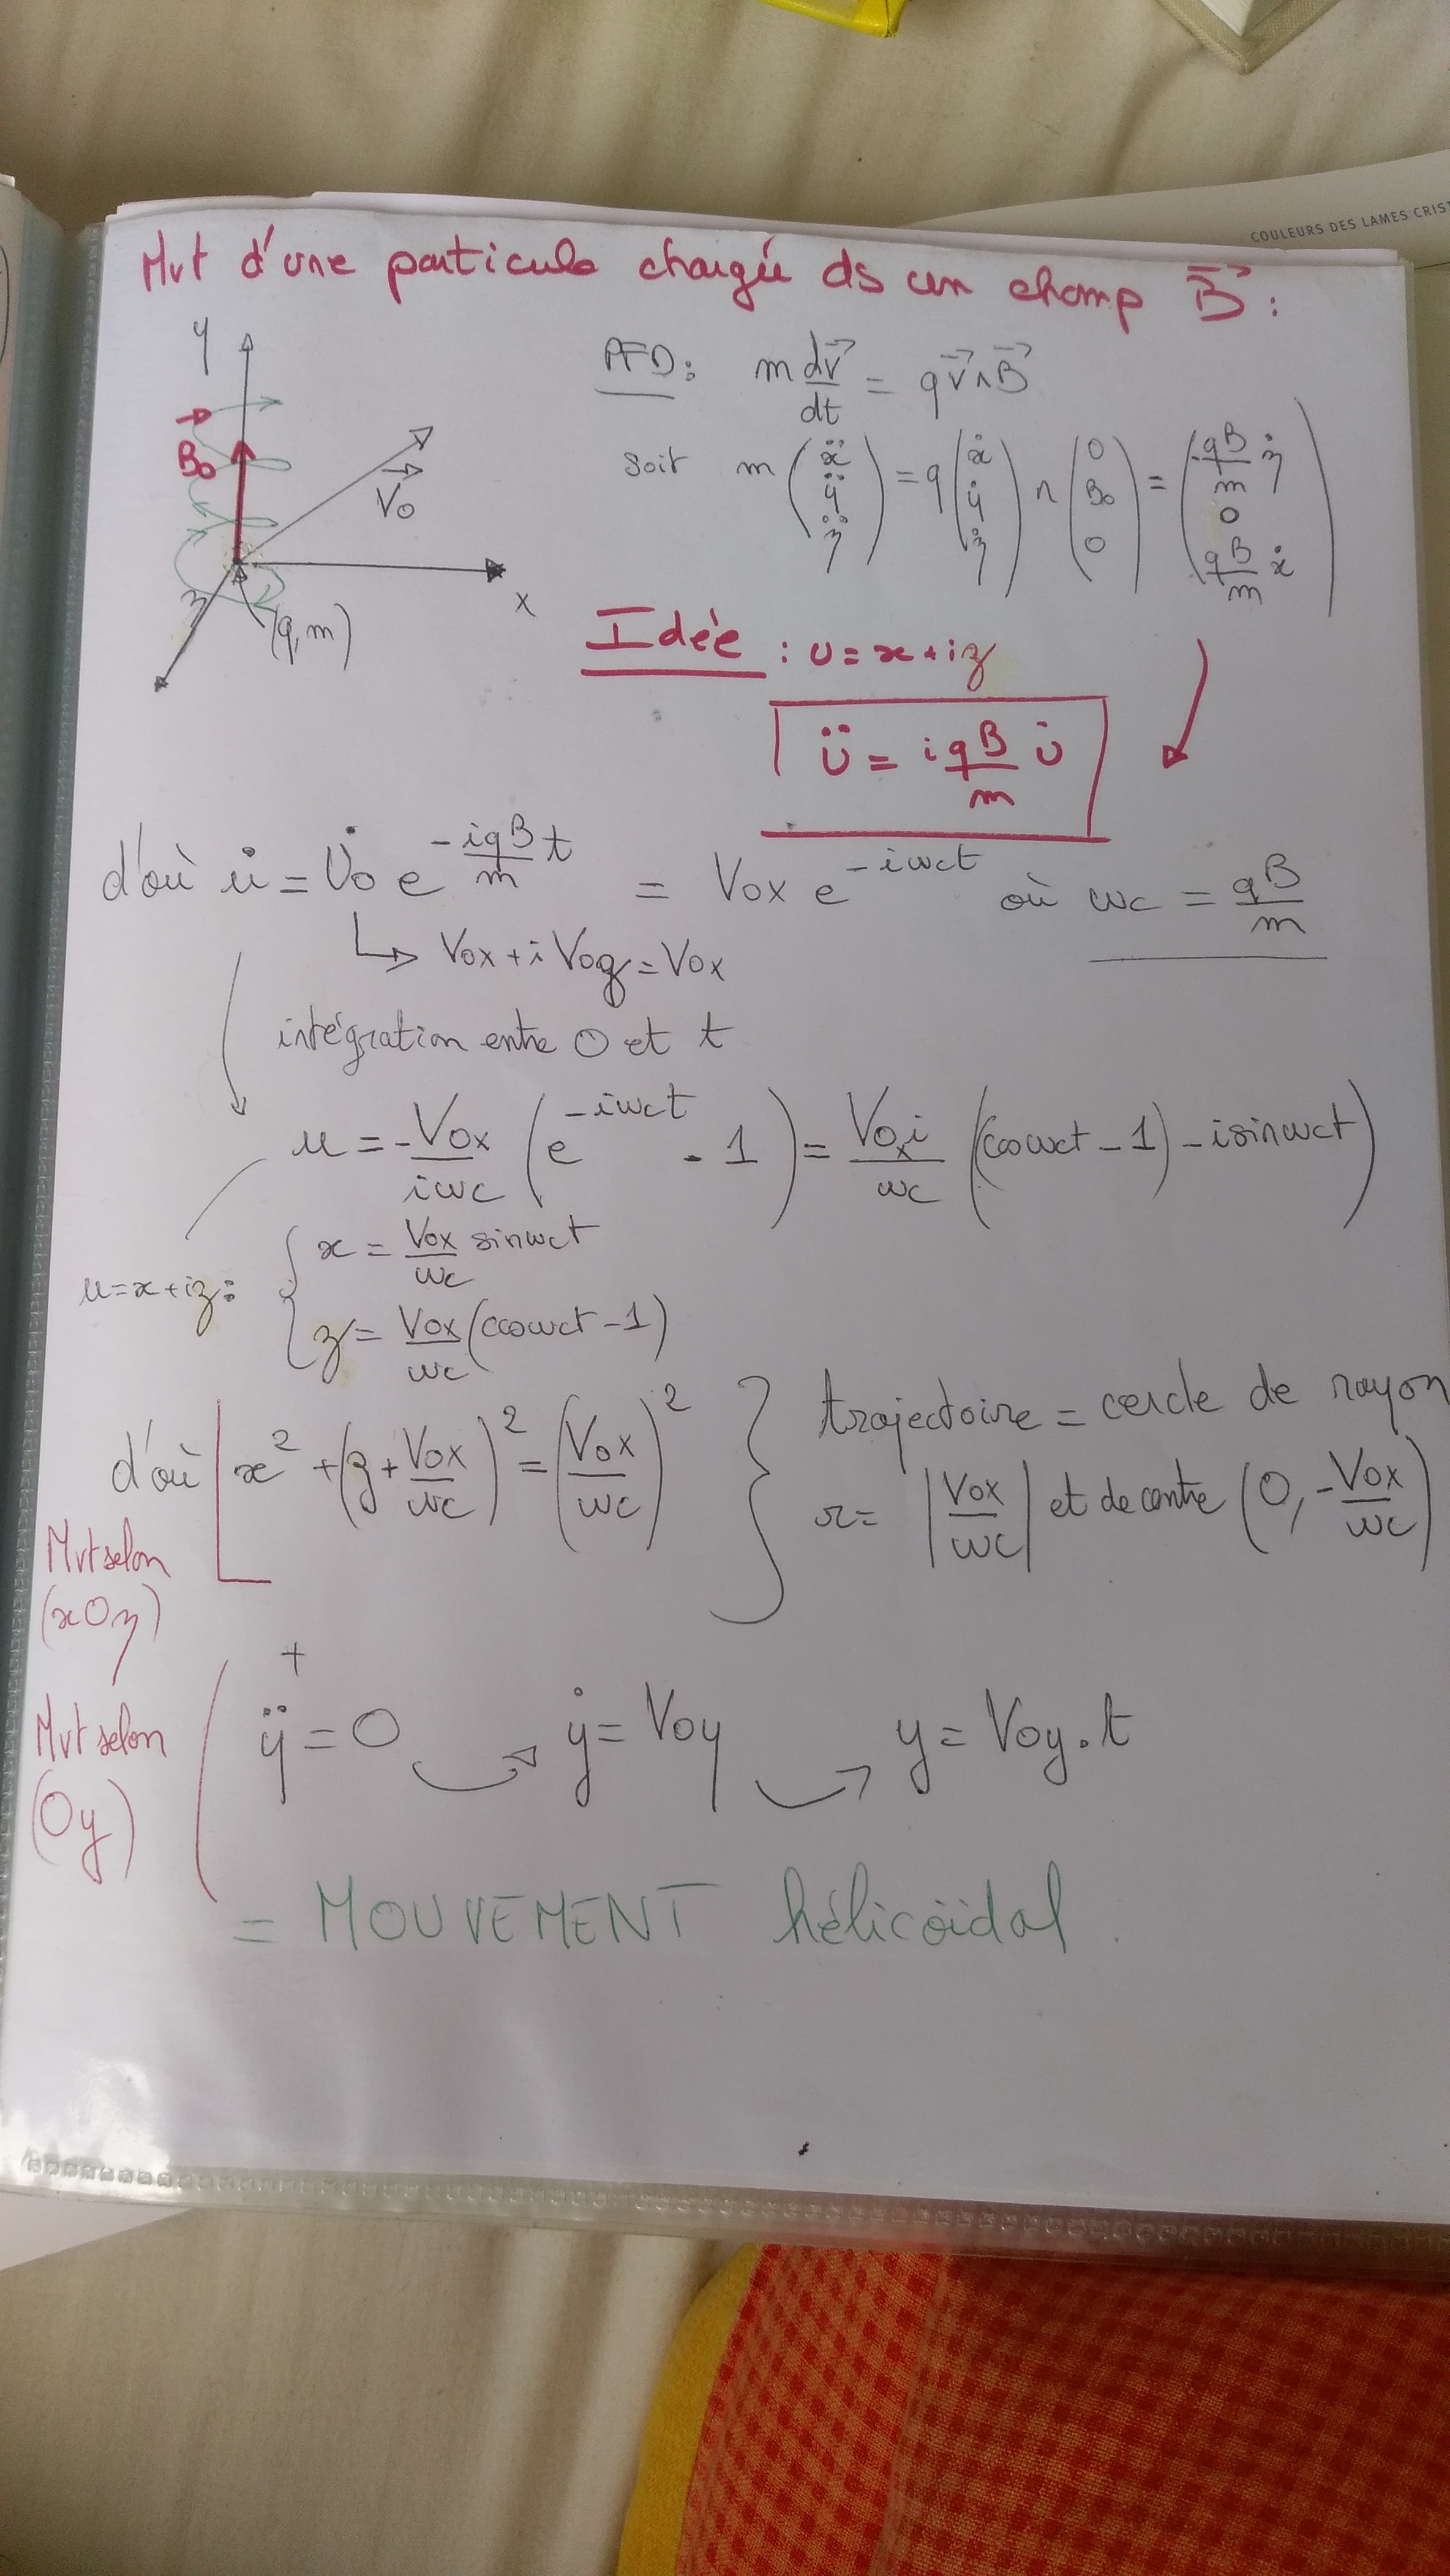 COULEURS DES LAMES CRIST
Mvt d'une particule chargée ds un champ B⃗ :
y
B⃗o
V⃗o
x
z
(q,m)
PFD: m dv⃗/dt = q v⃗ ∧ B⃗
soit m (ẍ ÿ z̈) = q (ẋ ẏ ż) ∧ (0 Bo 0) = (-qB/m ż 0 qB/m ẋ)
Idée : u = x + iz
ü = i qB/m u̇
d'où u̇ = U̇o e^(-iqB/m t) = Vox e^(-iωct) où ωc = qB/m
↳ Vox + i Voz = Vox
intégration entre 0 et t
u = -Vox/iωc (e^(-iωct) - 1) = Vox i/ωc (cosωct - 1) - i sinωct)
u = x + iz : { x = Vox/ωc sinωct
z = Vox/ωc (cosωct - 1)
d'où x² + (z + Vox/ωc)² = (Vox/ωc)² } trajectoire = cercle de rayon
r = |Vox/ωc| et de centre (0, -Vox/ωc)
Mvt selon
(xOz)
+
Mvt selon
(Oy)
ÿ = 0 → ẏ = Voy → y = Voy.t
= MOUVEMENT hélicoïdal.